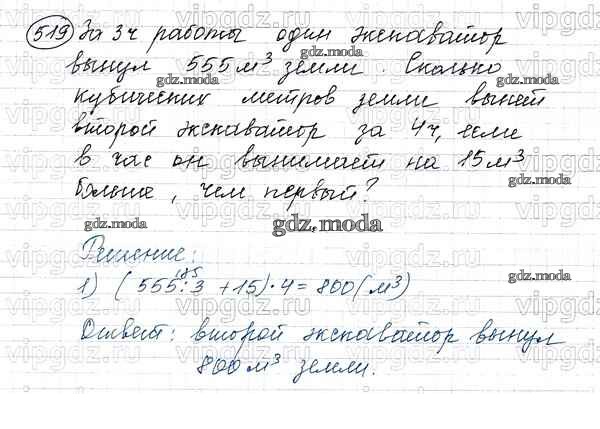 519 За 3ч работы один экскаватор
вынул 555м³ земли. Сколько
кубических метров земли вынет
второй экскаватор за 4ч, если
в час он вынимает на 15м³
больше, чем первый?
gdz.moda
Решение:
185
1) (555:3 +15)·4=800(м³)
Ответ: второй экскаватор вынул
800м³ земли.
vipgdz.ru